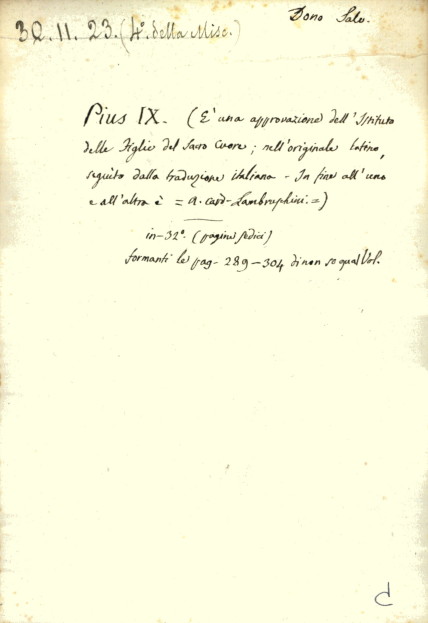 32. 11. 23. (4º. della Misc.)
Dono Salv.
Pius IX. (E' una approvazione dell'Istituto
delle Figlie del Sacro Cuore; nell'originale latino,
seguito dalla traduzione italiana - In fine all'uno
e all'altra è = A. card. Lambruschini. =)
in-32º. (pagine sedici)
formanti le pag. 289-304 di non so qual Vol.
C